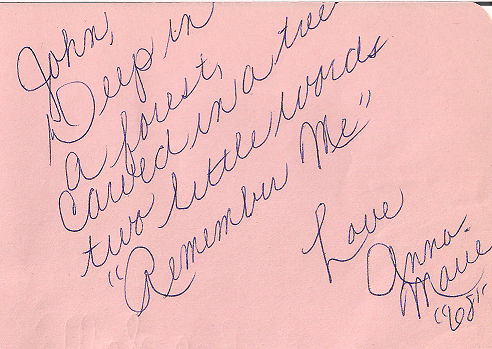 John,
Deep in
a forest,
carved in a tree
two little words
"Remember Me"
Love
Anna-
Marie
"68"